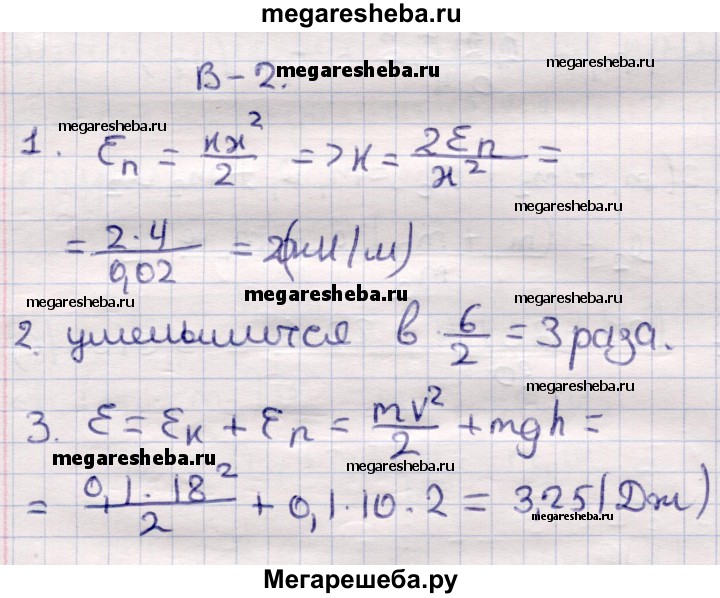 megaresheba.ru
В-2.
megaresheba.ru
megaresheba.ru
megaresheba.ru
1. Eп = kx²/2 => k = 2Eп/x² =
megaresheba.ru
= 2·4/0,02 = (кН/м)
megaresheba.ru
megaresheba.ru
megaresheba.ru
2. уменьшится в 6/2 = 3 раза.
megaresheba.ru
3. E = Eк + Eп = mv²/2 + mgh =
megaresheba.ru
megaresheba.ru
= 0,1·18²/2 + 0,1·10·2 = 3,25 (Дж)
megaresheba.ru
Мегарешеба.ру